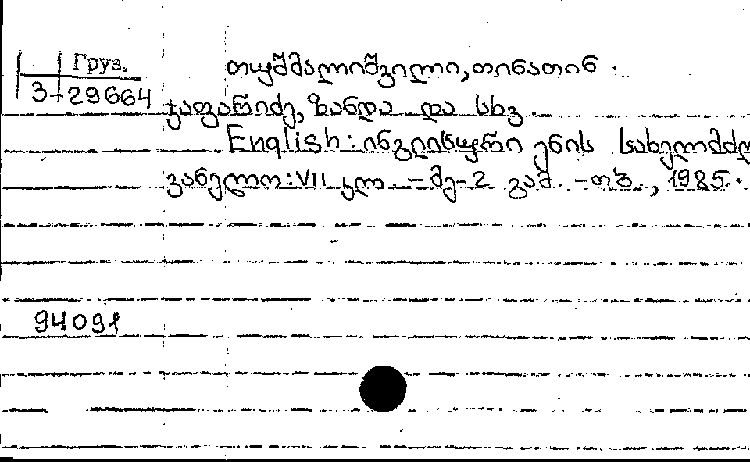 Груз.
3-29664
თუშმალიშვილი, თინათინ.
ჯაფარიძე, ზანდა და სხვ.
English: ინგლისური ენის სახელმძღ
ვანელო: VII კლ. - მე-2 გამ. - თბ., 1985.
94091